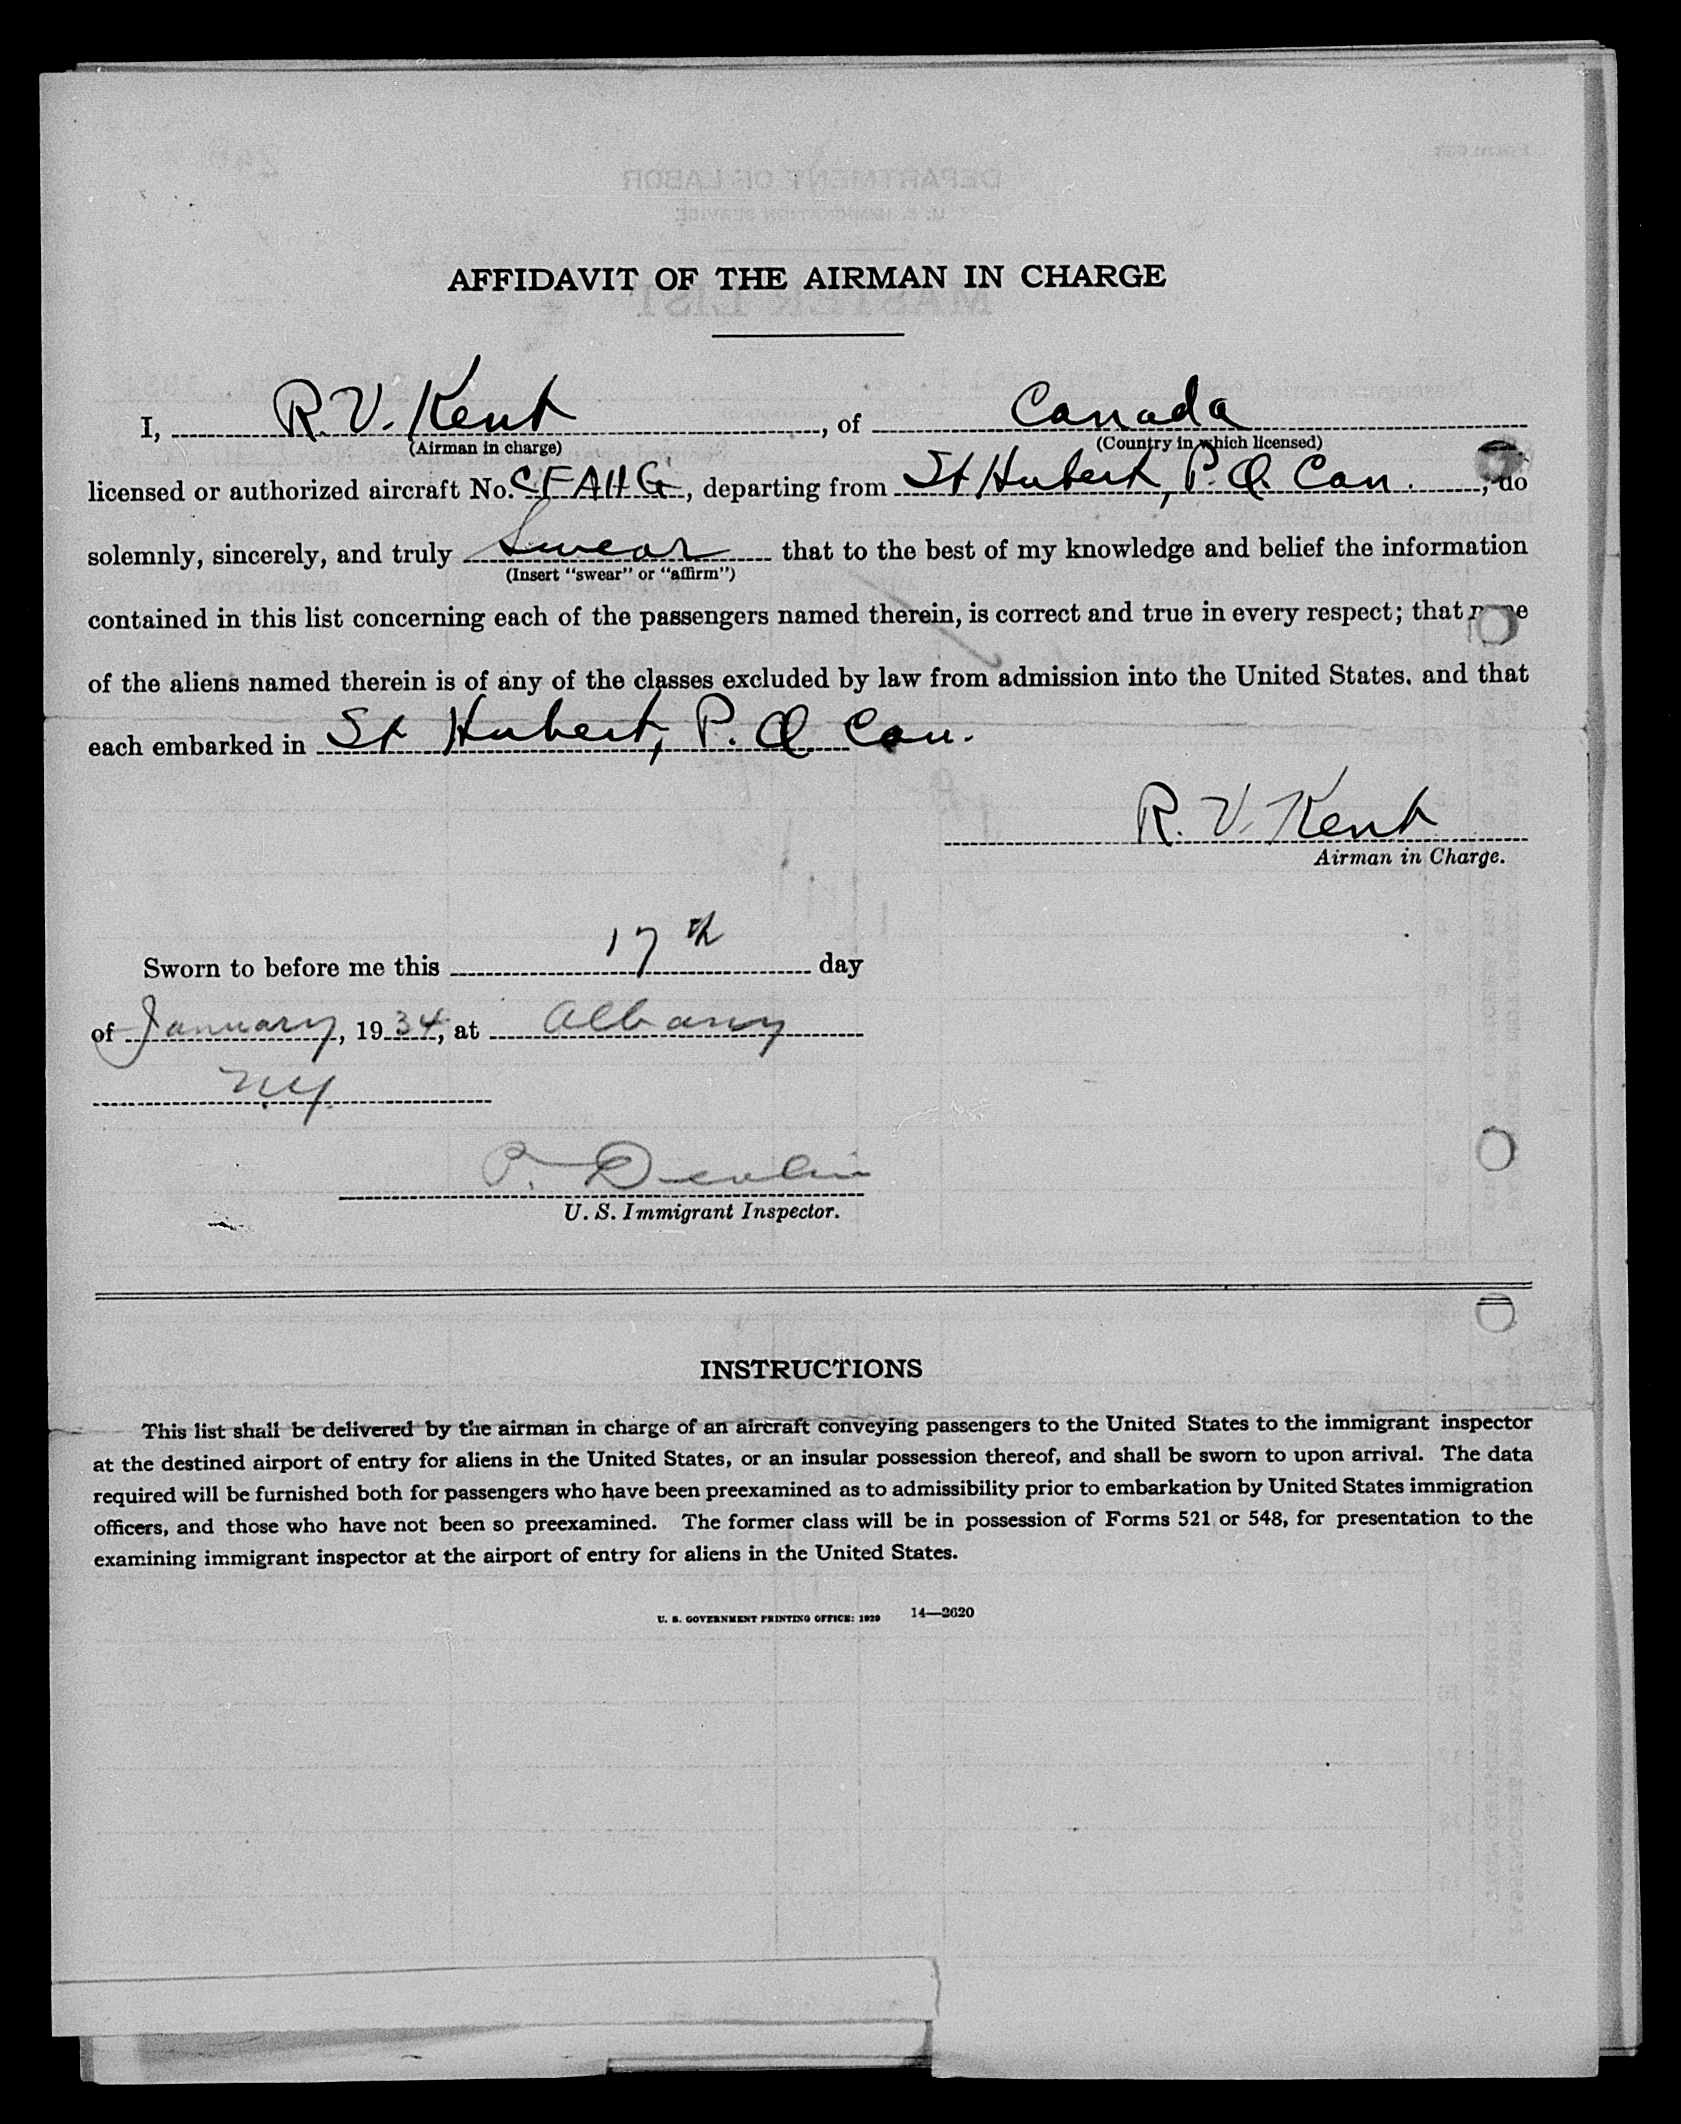 AFFIDAVIT OF THE AIRMAN IN CHARGE
I, R. V. Kent, of Canada
(Airman in charge) (Country in which licensed)
licensed or authorized aircraft No. CFAHG, departing from St Hubert, P. Q. Can., do
solemnly, sincerely, and truly Swear that to the best of my knowledge and belief the information
(Insert "swear" or "affirm")
contained in this list concerning each of the passengers named therein, is correct and true in every respect; that none
of the aliens named therein is of any of the classes excluded by law from admission into the United States, and that
each embarked in St Hubert, P. Q Can.
R. V. Kent
Airman in Charge.
Sworn to before me this 17th day
of January, 1934, at Albany
N.Y.
P. Devlin
U. S. Immigrant Inspector.
INSTRUCTIONS
This list shall be delivered by the airman in charge of an aircraft conveying passengers to the United States to the immigrant inspector
at the destined airport of entry for aliens in the United States, or an insular possession thereof, and shall be sworn to upon arrival. The data
required will be furnished both for passengers who have been preexamined as to admissibility prior to embarkation by United States immigration
officers, and those who have not been so preexamined. The former class will be in possession of Forms 521 or 548, for presentation to the
examining immigrant inspector at the airport of entry for aliens in the United States.
U. S. GOVERNMENT PRINTING OFFICE: 1929 14—2620